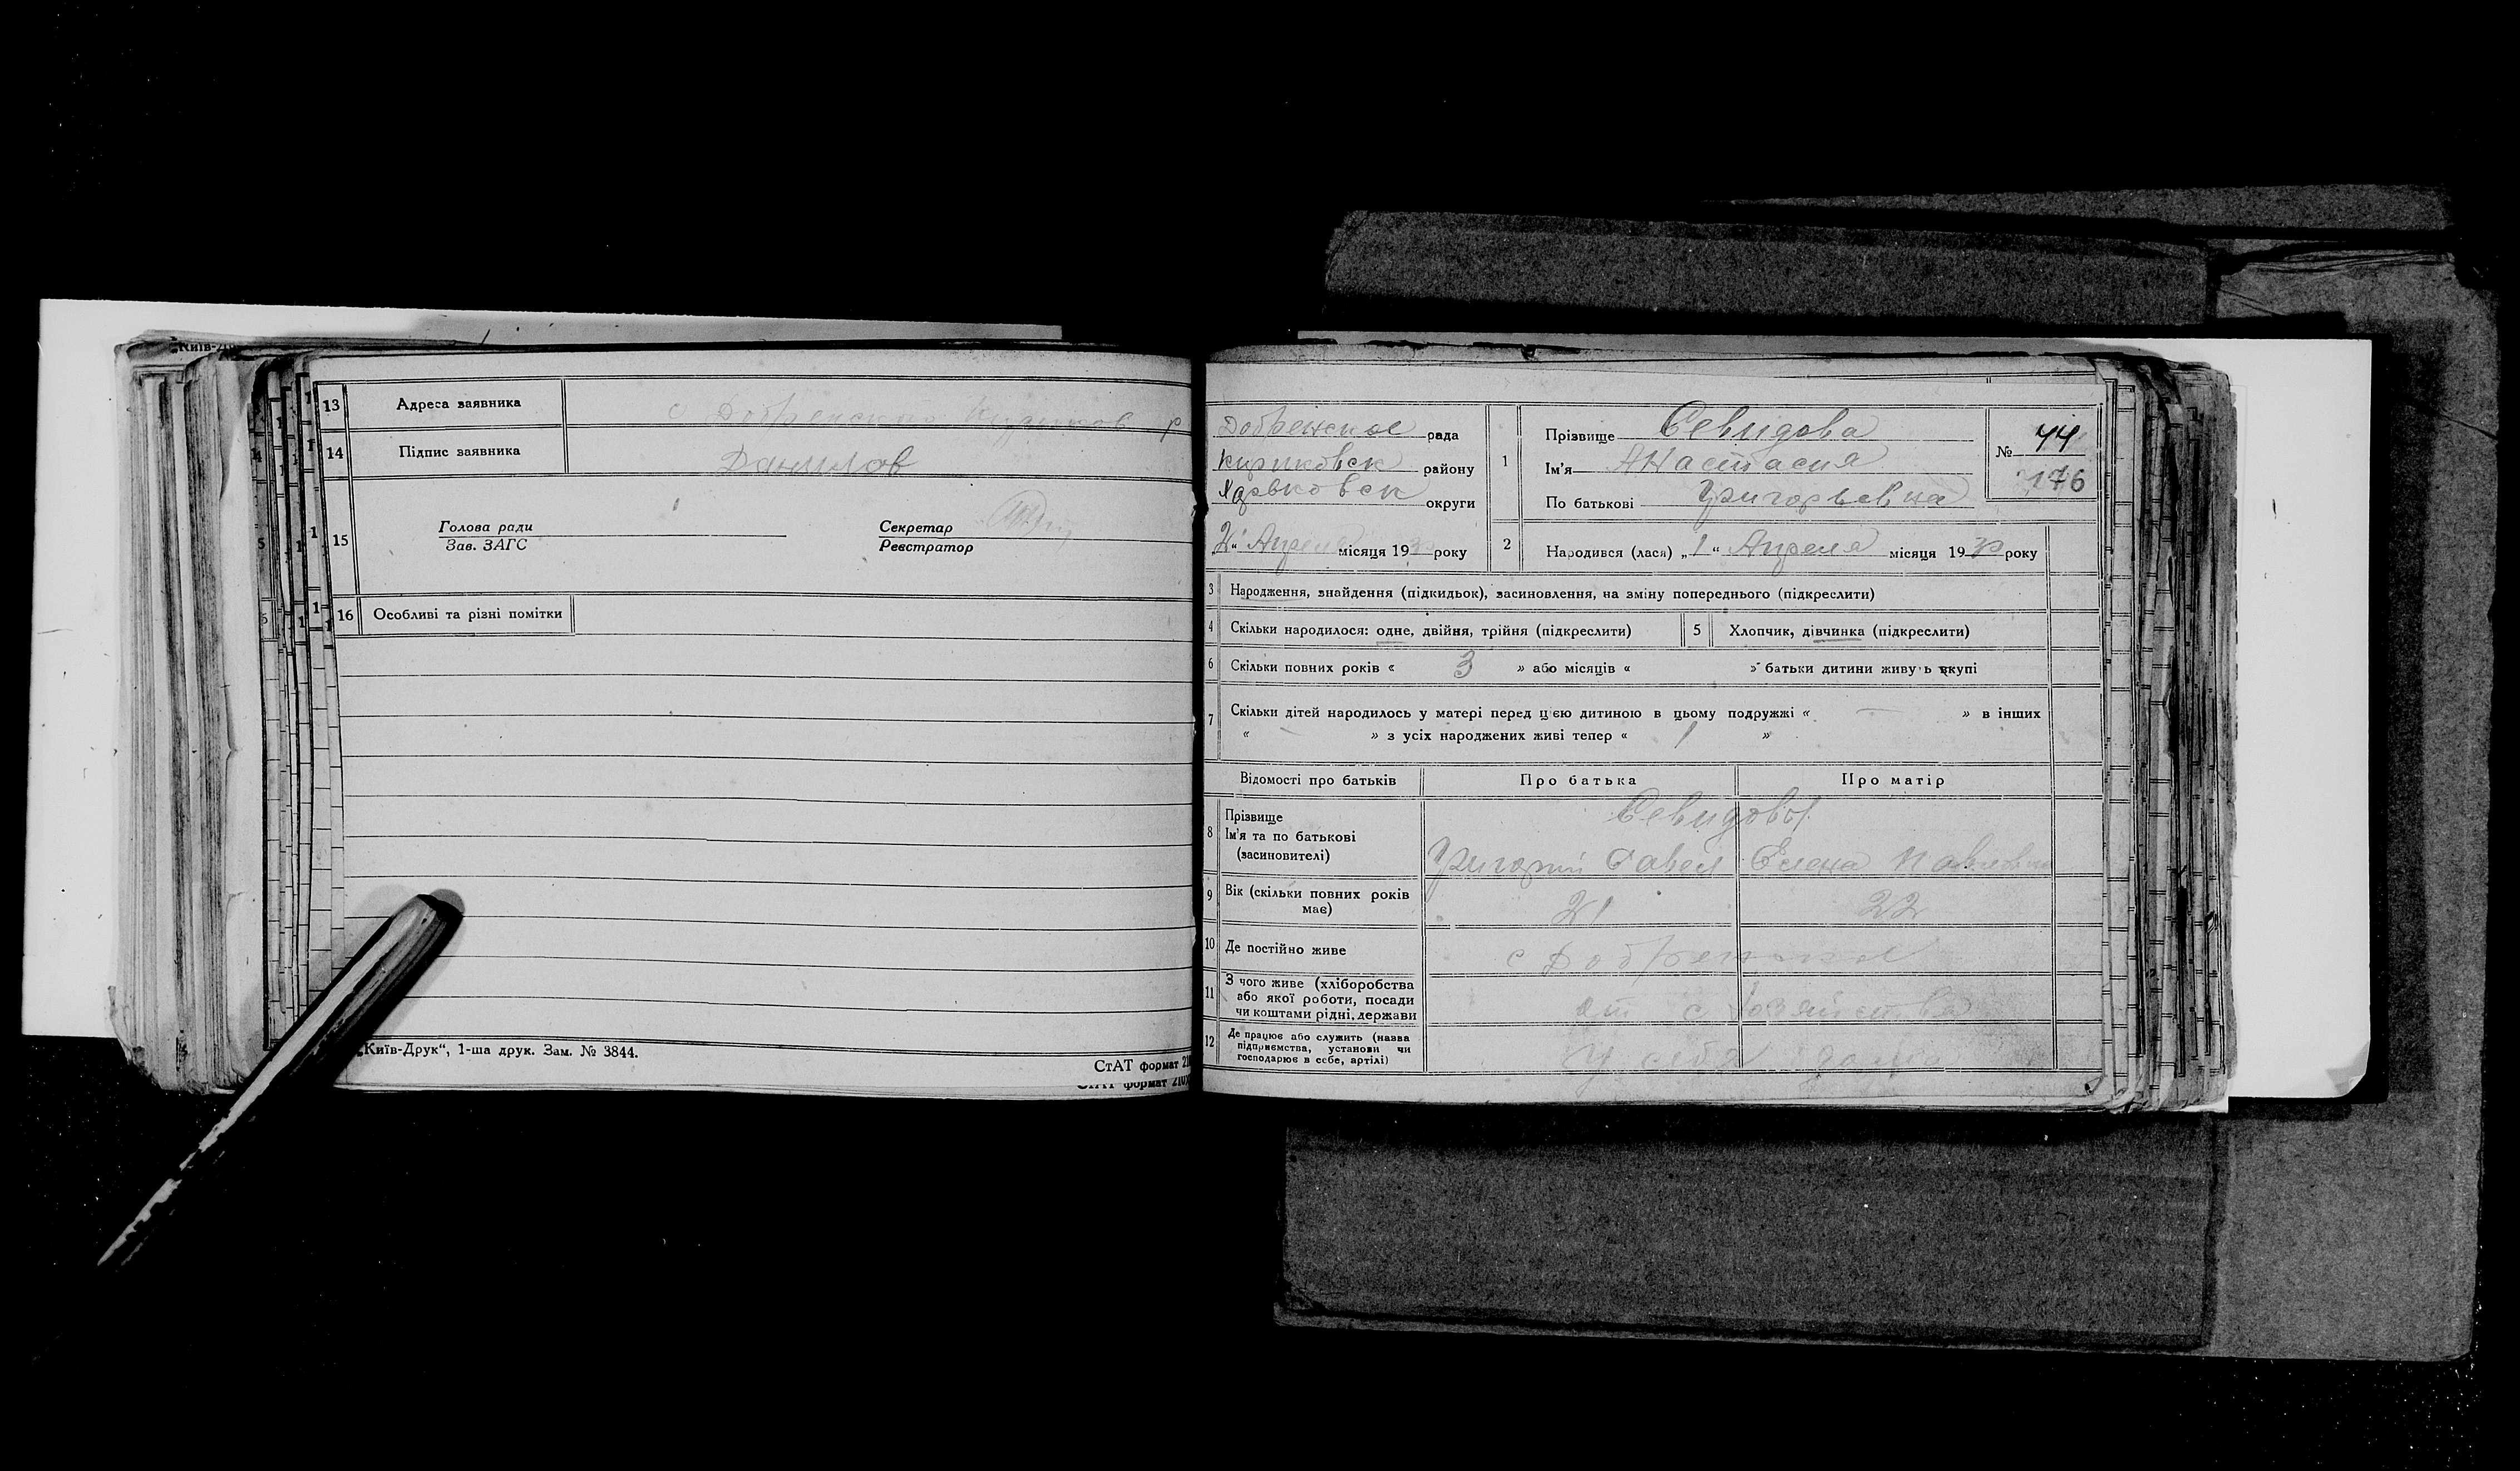 13 Адреса заявника с Добренское
14 Підпис заявника Данилов
15 Голова ради Секретар
Зав. ЗАГС Реєстратор
16 Особливі та різні помітки
„Київ-Друк“, 1-ша друк. Зам. № 3844.
СтАТ формат 21
СтАТ формат 210
Добренское рада
района району
округи
Апреля місяця 19 року
1 Прізвище Севидова
Ім'я Анастасия
По батькові Григорьевна
№ 44
176
2 Народився (лася) „1“ Апреля місяця 1930 року
3 Народження, знайдення (підкидьок), засиновлення, на зміну попереднього (підкреслити)
4 Скільки народилося: одне, двійня, трійня (підкреслити)
5 Хлопчик, дівчинка (підкреслити)
6 Скільки повних років « 3 » або місяців « » батьки дитини живуть вкупі
7 Скільки дітей народилось у матері перед цією дитиною в цьому подружжі « — » в інших
« — » з усіх народжених живі тепер « 1 »
Відомості про батьків Про батька Про матір
8 Прізвище Севидовы
Ім'я та по батькові
(засиновителі) Григорий Савел Елена Павловна
9 Вік (скільки повних років
має) 21 22
10 Де постійно живе с Добренское
11 З чого живе (хліборобства
або якої роботи, посади
чи коштами рідні, держави от с хозяйства
12 Де працює або служить (назва
підприємства, установи чи
господарює в себе, артілі) У себя дома